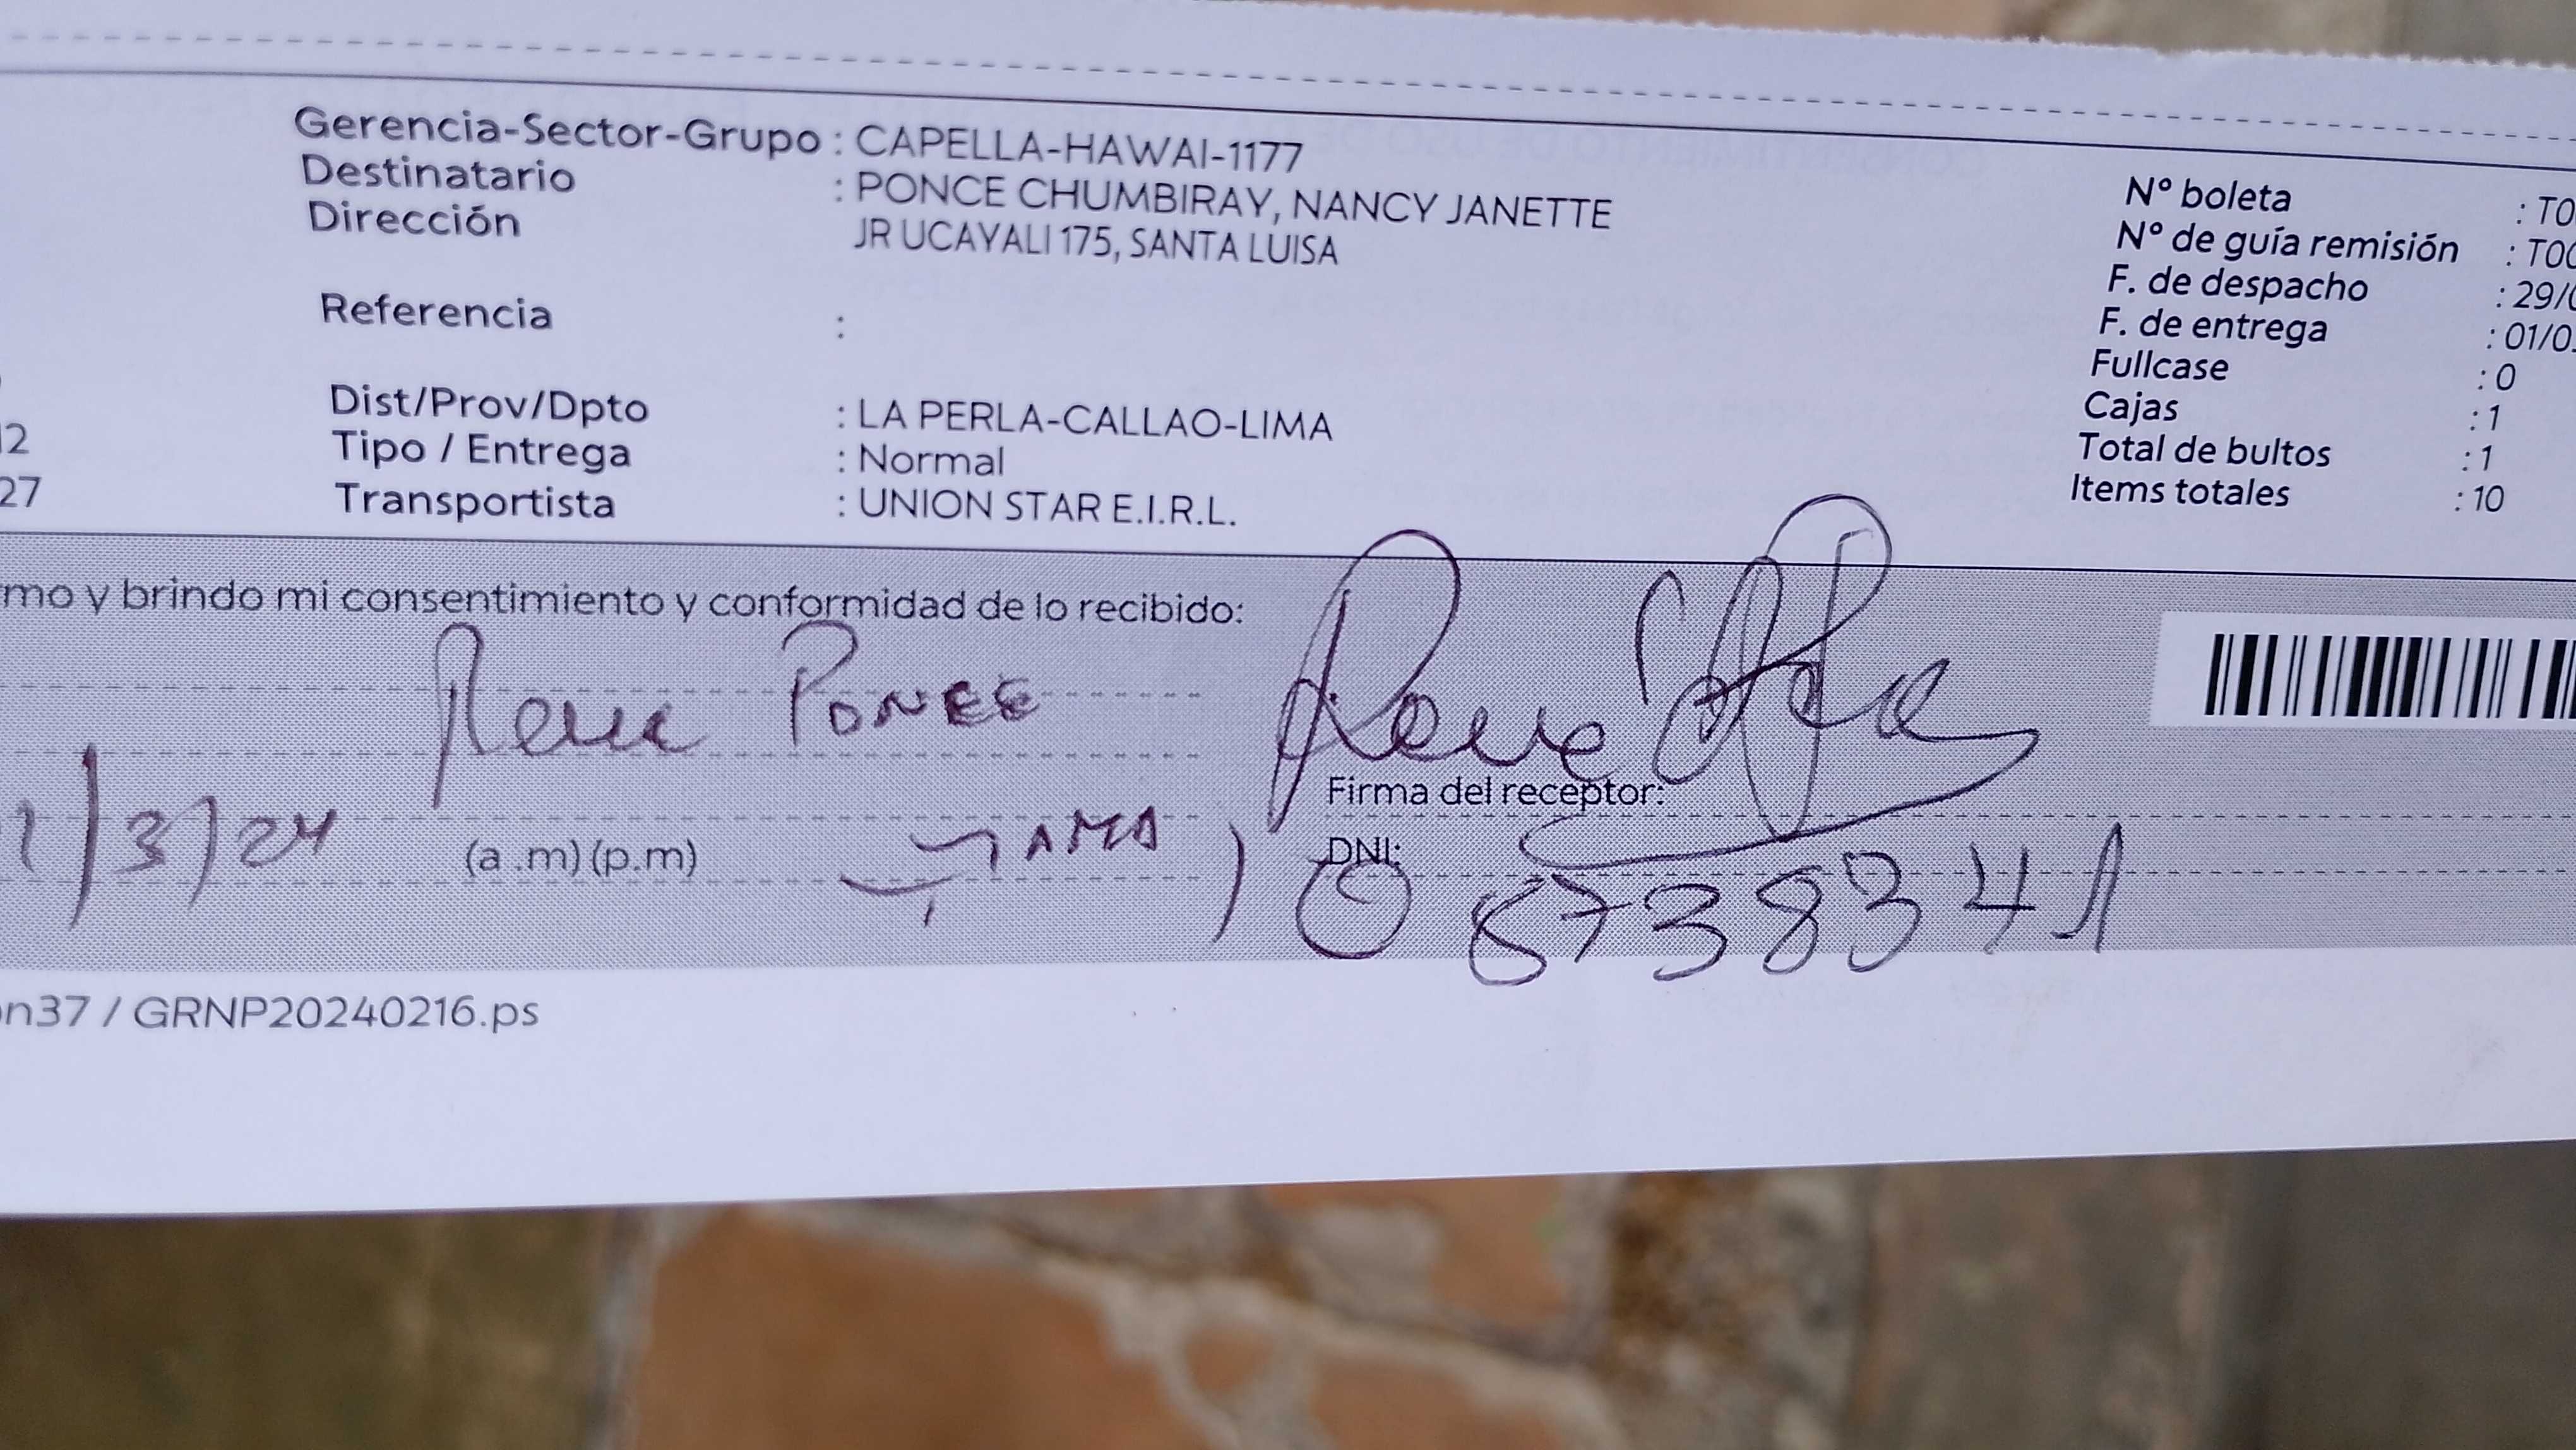 Gerencia-Sector-Grupo : CAPELLA-HAWAI-1177
Destinatario : PONCE CHUMBIRAY, NANCY JANETTE
Dirección JR UCAYALI 175, SANTA LUISA
Referencia :
Dist/Prov/Dpto : LA PERLA-CALLAO-LIMA
Tipo / Entrega : Normal
Transportista : UNION STAR E.I.R.L.
12
27
Nº boleta : T0
Nº de guía remisión : T00
F. de despacho : 29/0
F. de entrega : 01/0
Fullcase : 0
Cajas : 1
Total de bultos : 1
Items totales : 10
mo y brindo mi consentimiento y conformidad de lo recibido:
PONCE
1/3/24 (a .m) (p.m)
Firma del receptor:
DNI:
06738341
n37 / GRNP20240216.ps